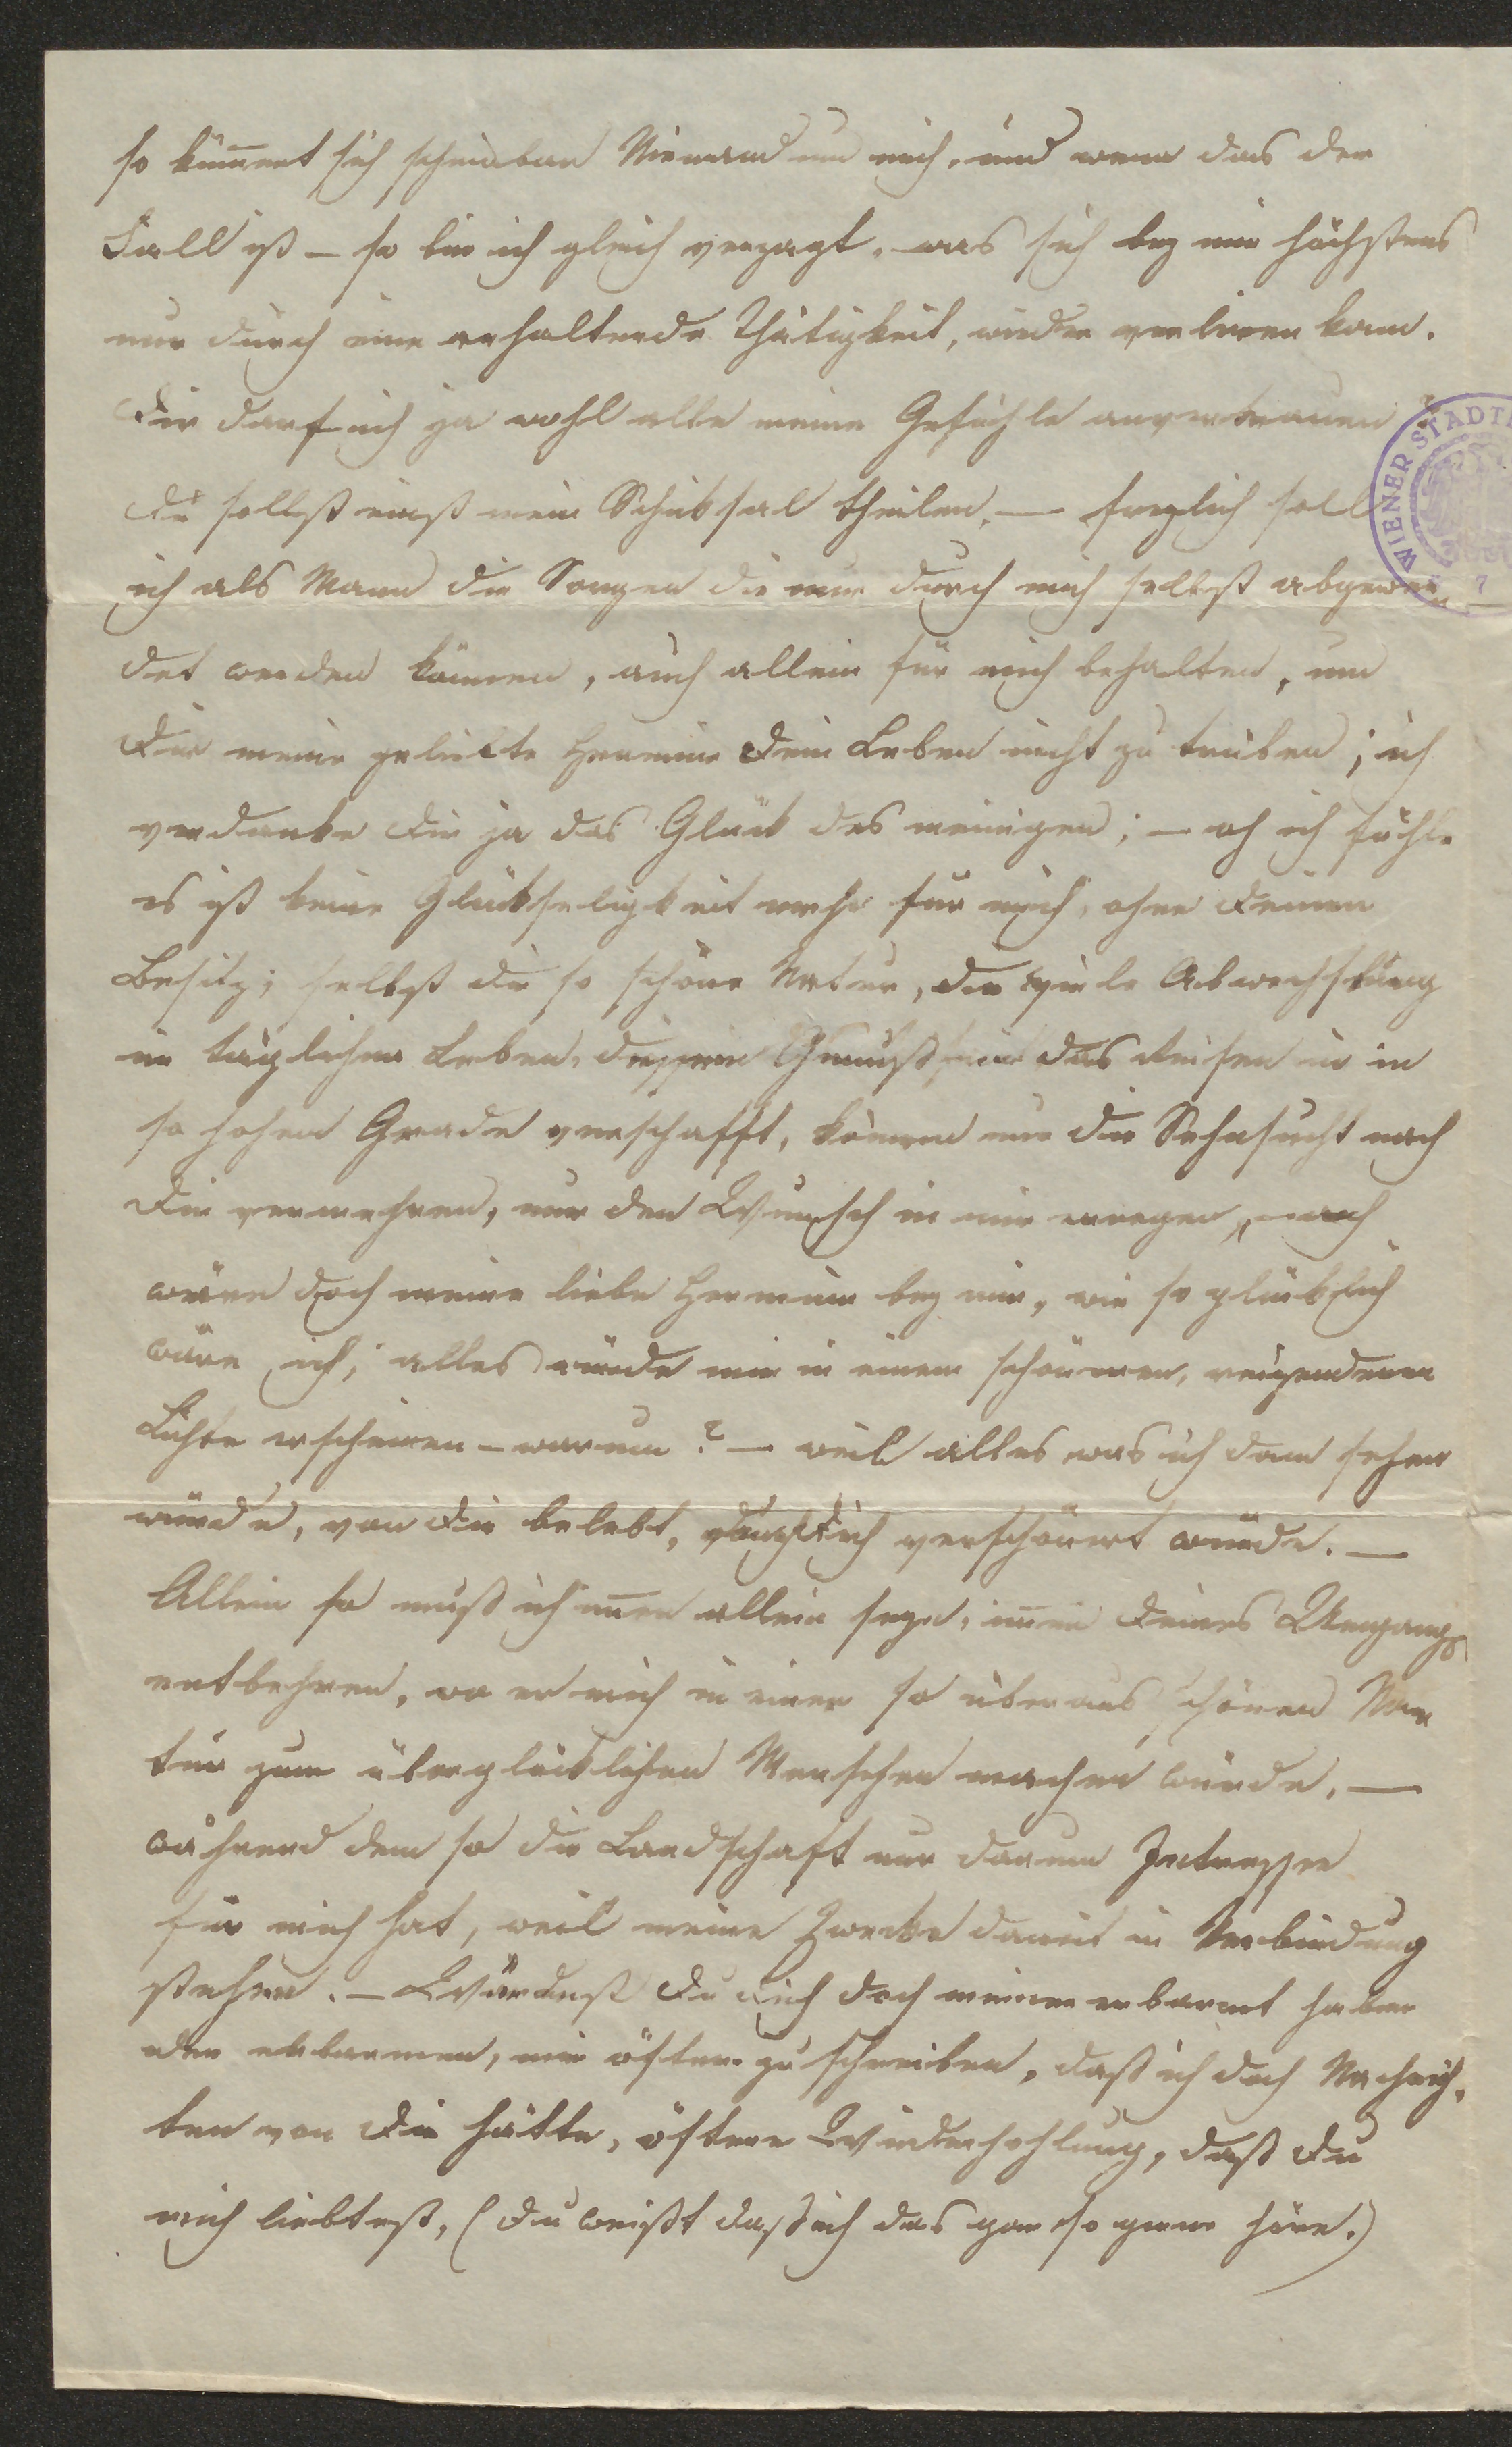 so kümmert sich scheinbar Niemand um mich, und wenn das der
Fall ist – so bin ich gleich verzagt, was sich bey mir höchstens
nur durch eine erhaltende Thätigkeit, wieder verlieren kann.
Dir darf ich ja wohl alle meine Gefühle anvertrauen?
Du sollst einst mein Schiksal theilen, — freylich soll
ich als Mann die Sorgen die nur durch mich selbst abgewen
det werden können, auch allein für mich behalten, um
Dir meine geliebte Hermine Dein Leben nicht zu trüben; ich
verdanke Dir ja das Glück des meinigen; – oh ich fühle
es ist keine Glükseligkeit mehr für mich, ohne Deinen
Besitz; selbst die so schöne Natur, die viele Abwechslung
im täglichen Leben, dessen Genuß das Reisen in
so hohem Grade verschafft, können nur die Sehnsucht nach
Dir vermehren, nur den Wunsch in mir erregen, „ach
wäre doch meine liebe Hermine bey mir, wie so glüklich
wäre ich; alles würde mir in einem schöneren, reizenderen
Lichte erscheinen – warum? – weil alles was ich dann sehen
würde, von Dir belebt, durch Dich verschönert würde. —
Allein so muß ich immer allein seyn, immer Deines Umgangs
entbehren, wo er mich in einer so überaus schönen Na
tur zum überglücklichen Menschen machen würde, —
während dem so die Landschaft nur darum Intresse
für mich hat, weil meine Zwecke damit in Verbindung
stehen. – Würdest Du Dich doch meiner erbarmt haben
oder erbarmen, mir öfter zu schreiben, daß ich doch Nachrich,
ten von Dir hätte, öftere Wiederhohlung, daß Du
mich liebtest, (Du weißt daß ich das gar so gerne höre.)
WIENER STADT
7